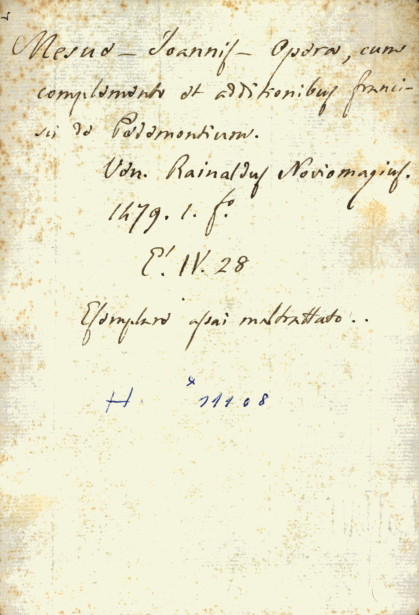 Mesue - Joannis - Opera, cum
complemento et additionibus franci-
sci de Pedemontium.
Ven. Rainaldus Noviomagius.
1479. 1. fº.
E'. IV. 28
Esemplare assai maltrattato..
H *11108